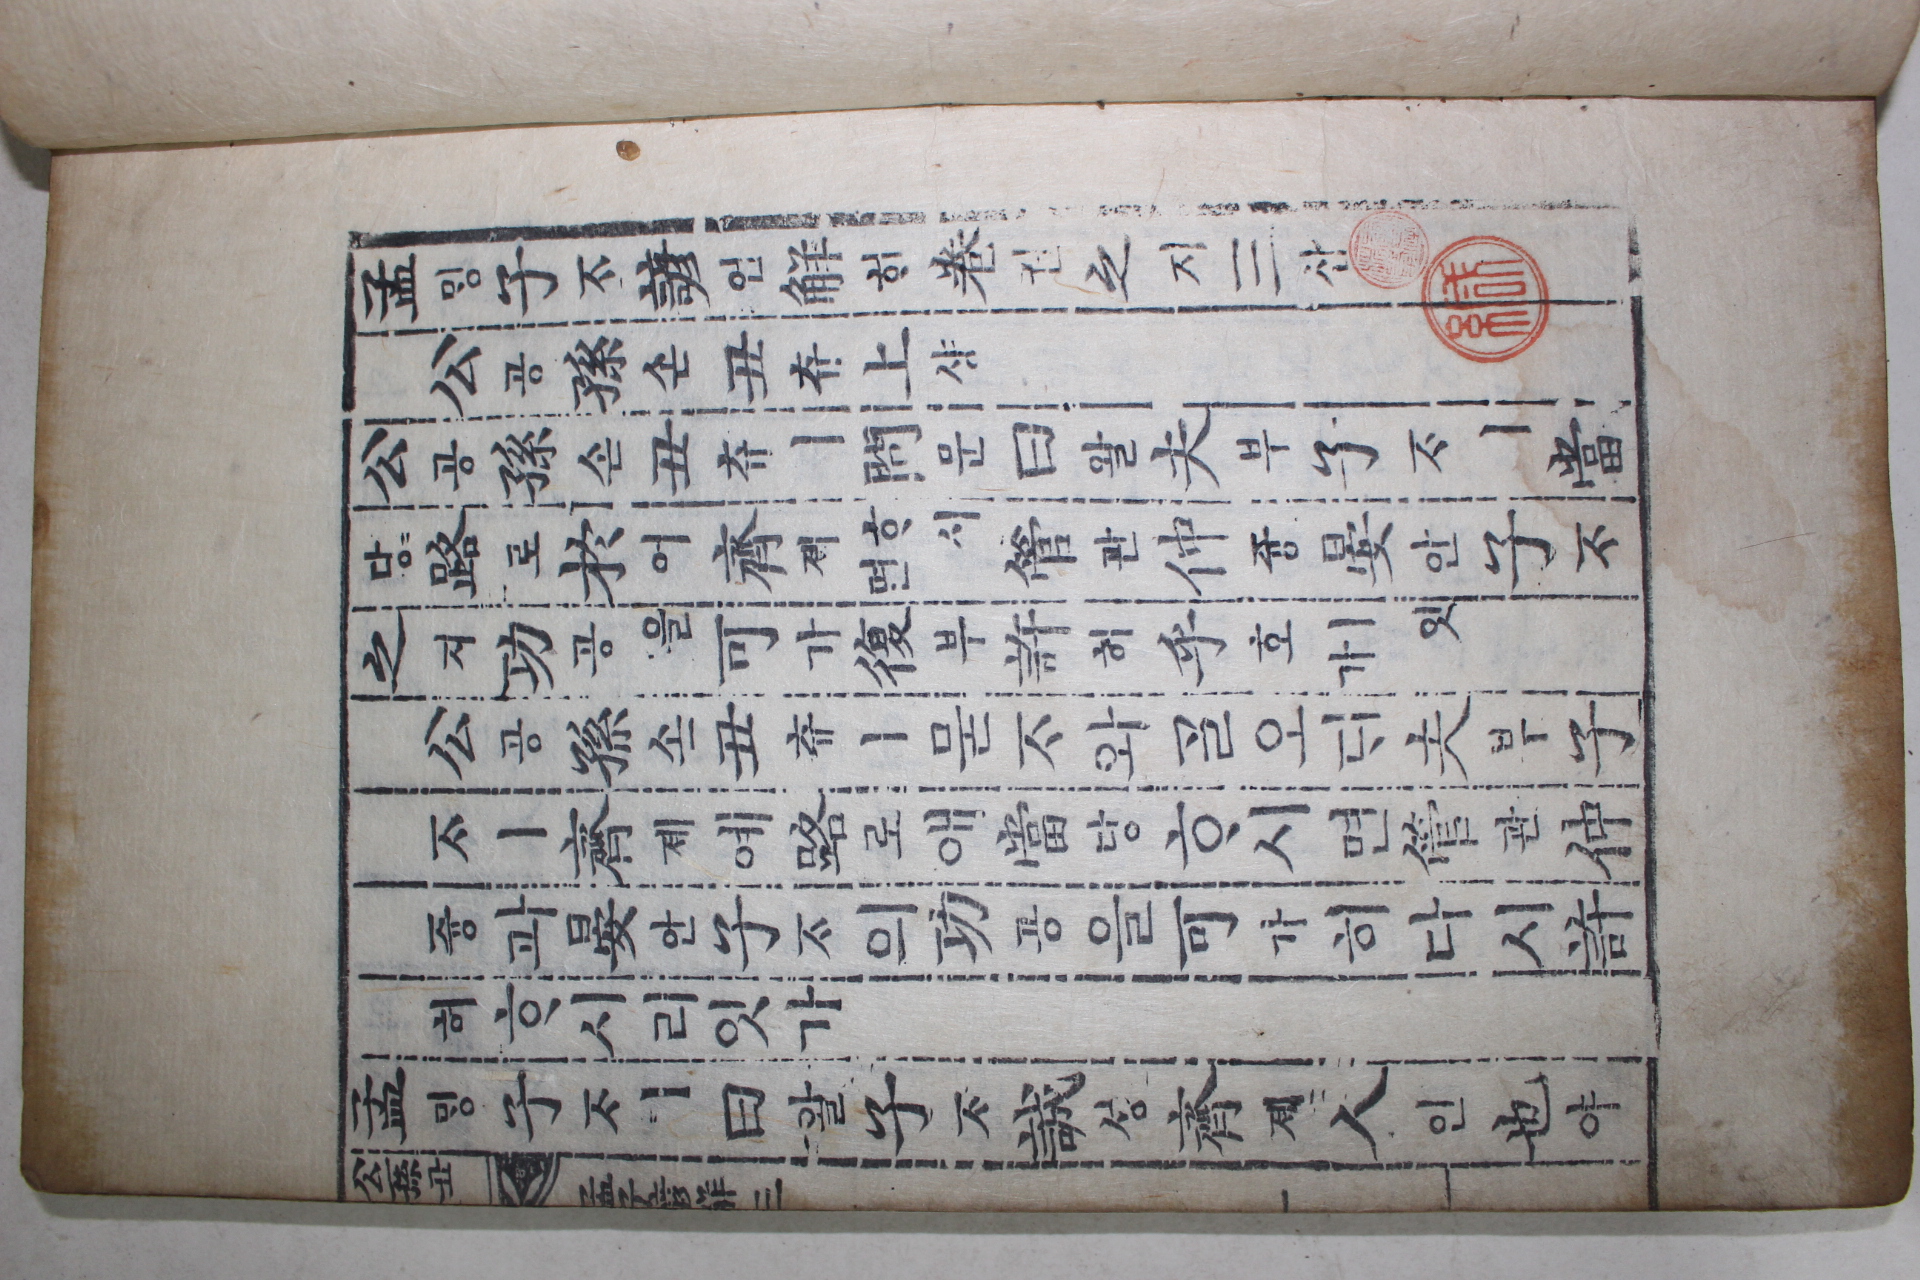 孟밍子ᄌᆞ諺언解ᄒᆡ卷권之지三삼
公공孫손丑츄上샹
公공孫손丑츄ㅣ問문曰왈夫부子ᄌᆞㅣ當
당路로於어齊졔ᄒᆞ시면管관仲듕晏안子ᄌᆞ
之지功공을可가復부許허乎호ㅣ잇가
公공孫손丑츄ㅣ묻ᄌᆞ와ᄀᆞᆯ오ᄃᆡ夫부子
ᄌᆞㅣ齊졔예路로애當당ᄒᆞ시면管관仲
듕과晏안子ᄌᆞ의功공을可가히다시許
허ᄒᆞ시리잇가
孟밍子ᄌᆞㅣ曰왈子ᄌᆞ誠셩齊졔人인也야
公孫丑
孟子諺解 三
一